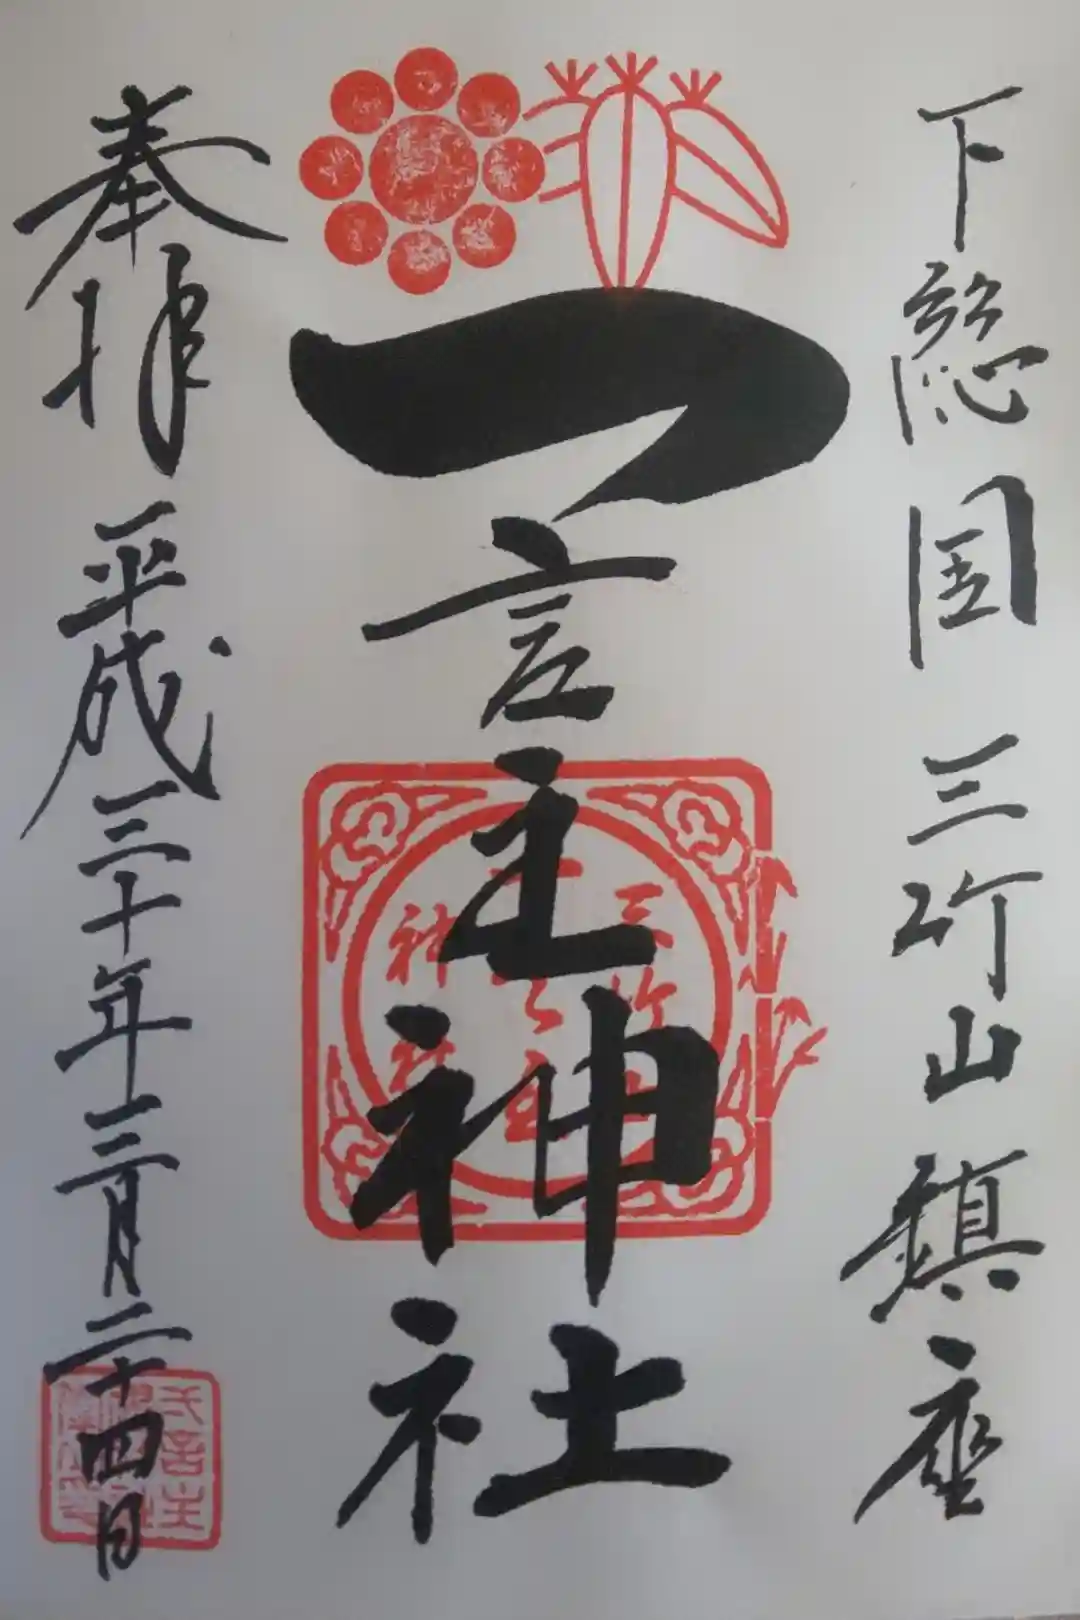 下総国三竹山鎮座
一言主神社
奉拝 平成三十年三月二十四日
三竹山
一言主
神社